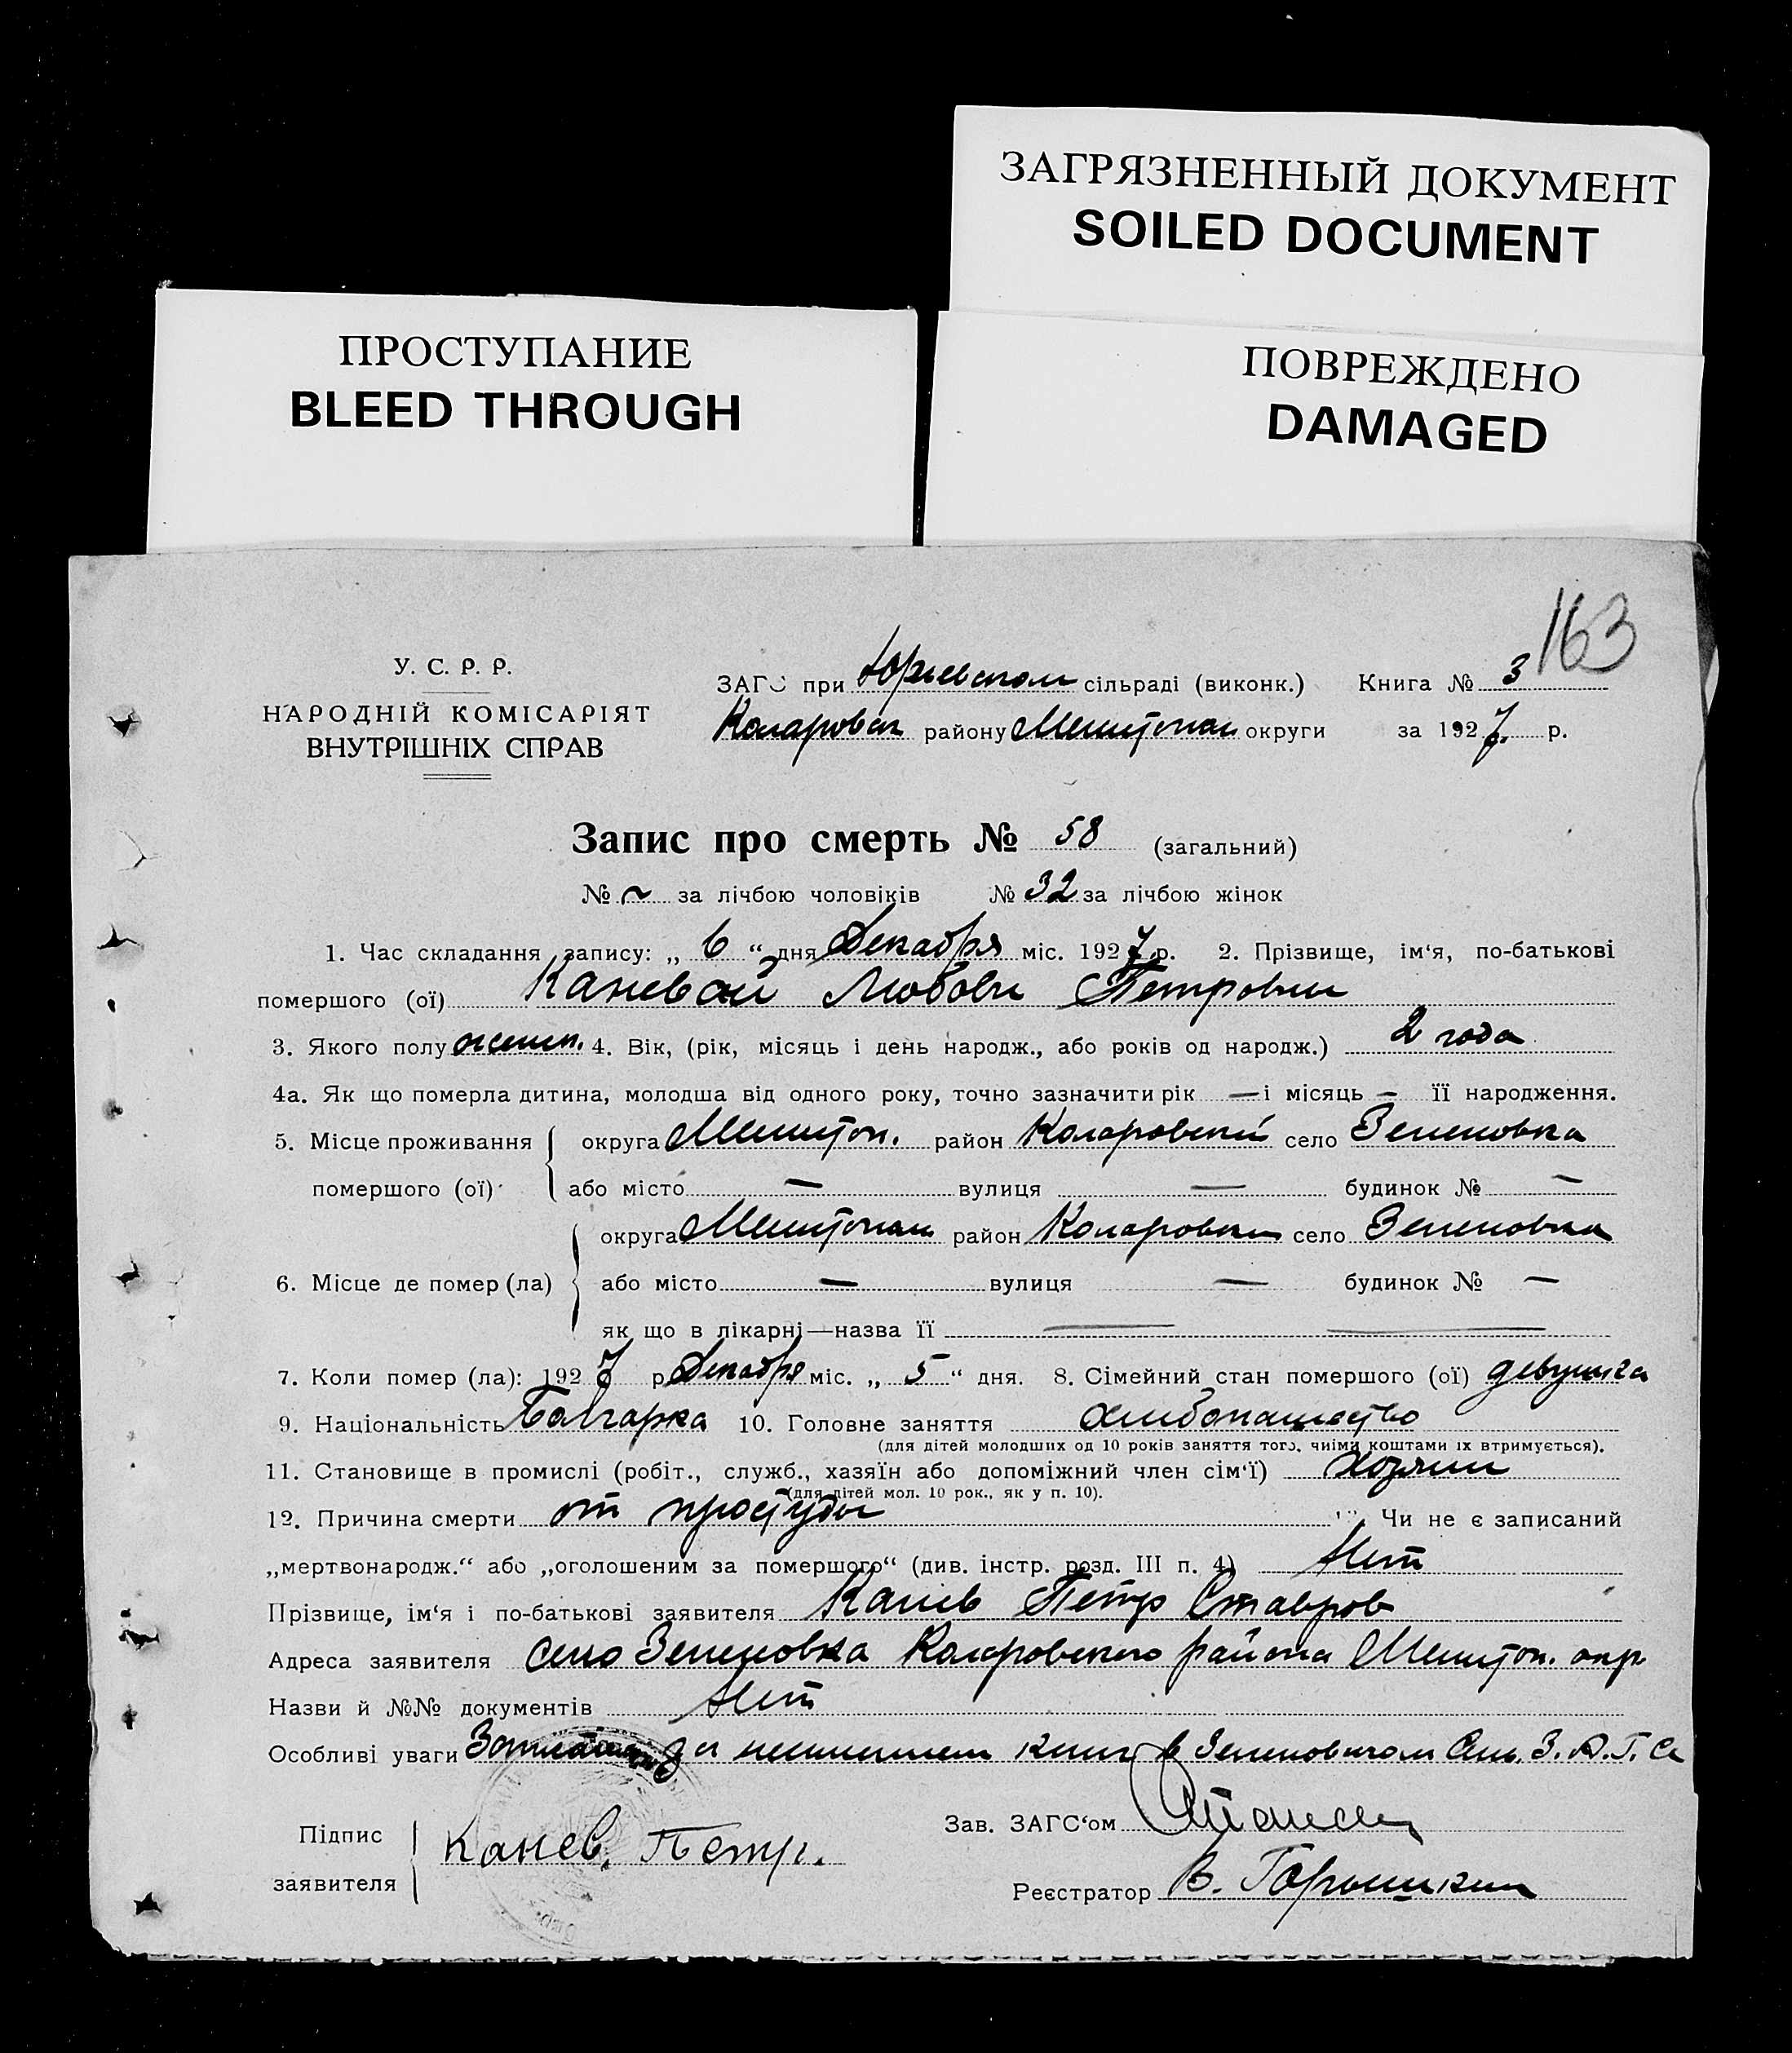 ЗАГРЯЗНЕННЫЙ ДОКУМЕНТ
SOILED DOCUMENT
ПРОСТУПАНИЕ
BLEED THROUGH
ПОВРЕЖДЕНО
DAMAGED
163
У. С. Р. Р.
НАРОДНІЙ КОМІСАРІЯТ
ВНУТРІШНІХ СПРАВ
ЗАГС при Юрьевском сільраді (виконк.) Книга № 3
Коларовск району Мелитопол округи за 1927 р.
Запис про смерть № 58 (загальний)
№ ~ за лічбою чоловіків № 32 за лічбою жінок
1. Час складання запису: „ 6 “ дня Декабря міс. 1927 р. 2. Прізвище, ім‘я, по-батькові
помершого (ої) Каневой Любовы Петровны
3. Якого полу женск. 4. Вік, (рік, місяць і день народж., або років од народж.) 2 года
4а. Як що померла дитина, молодша від одного року, точно зазначити рік — і місяць — її народження.
5. Місце проживання округа Мелитоп. район Коларовский село Зеленовка
помершого (ої) або місто — вулиця — будинок № —
округа Мелитопол район Коларовск село Зеленовка
6. Місце де помер (ла) або місто — вулиця — будинок № —
як що в лікарні—назва її — —
7. Коли помер (ла): 1927 р Декабря міс. „ 5 “ дня. 8. Сімейний стан помершого (ої) девушка
9. Національність Болгарка 10. Головне заняття хлибопашество
(для дітей молодших од 10 років заняття того, чиїми коштами їх втримується).
11. Становище в промислі (робіт., служб., хазяїн або допоміжний член сім‘ї) Хозяин
(для дітей мол. 10 рок., як у п. 10).
12. Причина смерти от простуды Чи не є записаний
„мертвонародж.“ або „оголошеним за помершого“ (див. інстр. розд. III п. 4) Нет
Прізвище, ім‘я і по-батькові заявителя Канев Петр Ставров
Адреса заявителя село Зеленовка Коларовского района Мелитоп. окр.
Назви й №№ документів Нет
Особливі уваги за неимением книг в Зеленовском Сель. З. А. Г. Се
Підпис
заявителя Канев. Петр.
Зав. ЗАГС‘ом
Реєстратор В.